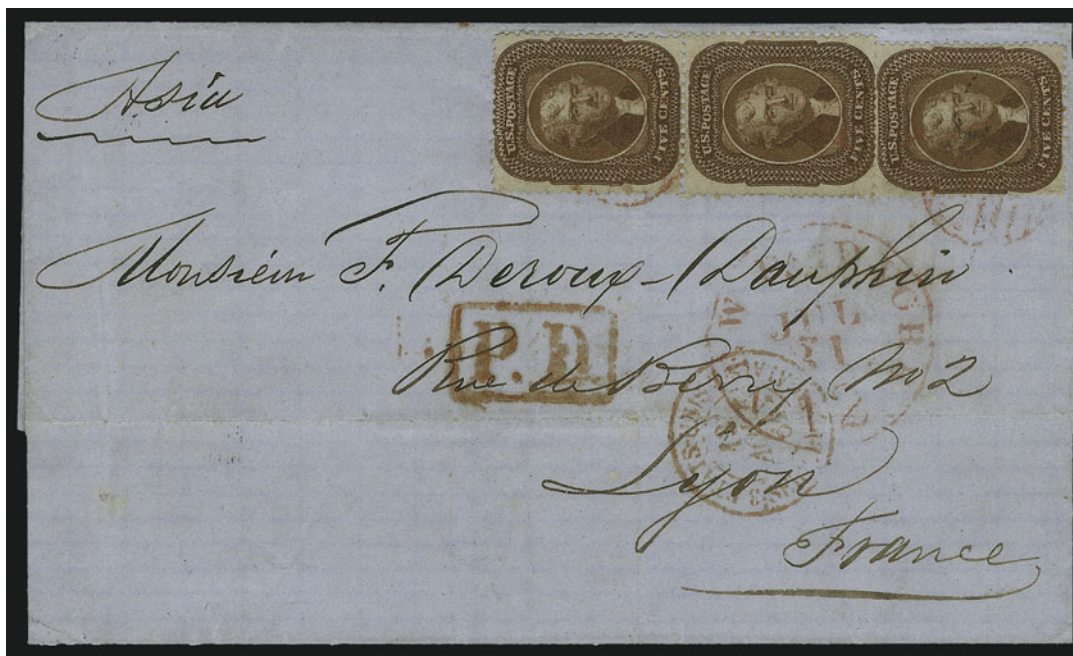 Asia
U.S. POSTAGE FIVE CENTS
U.S. POSTAGE FIVE CENTS
U.S. POSTAGE FIVE CENTS
Monsieur F. Deroux-Dauphin
JUL
31
P.D.
Rue de Berry No 2
Lyon
France